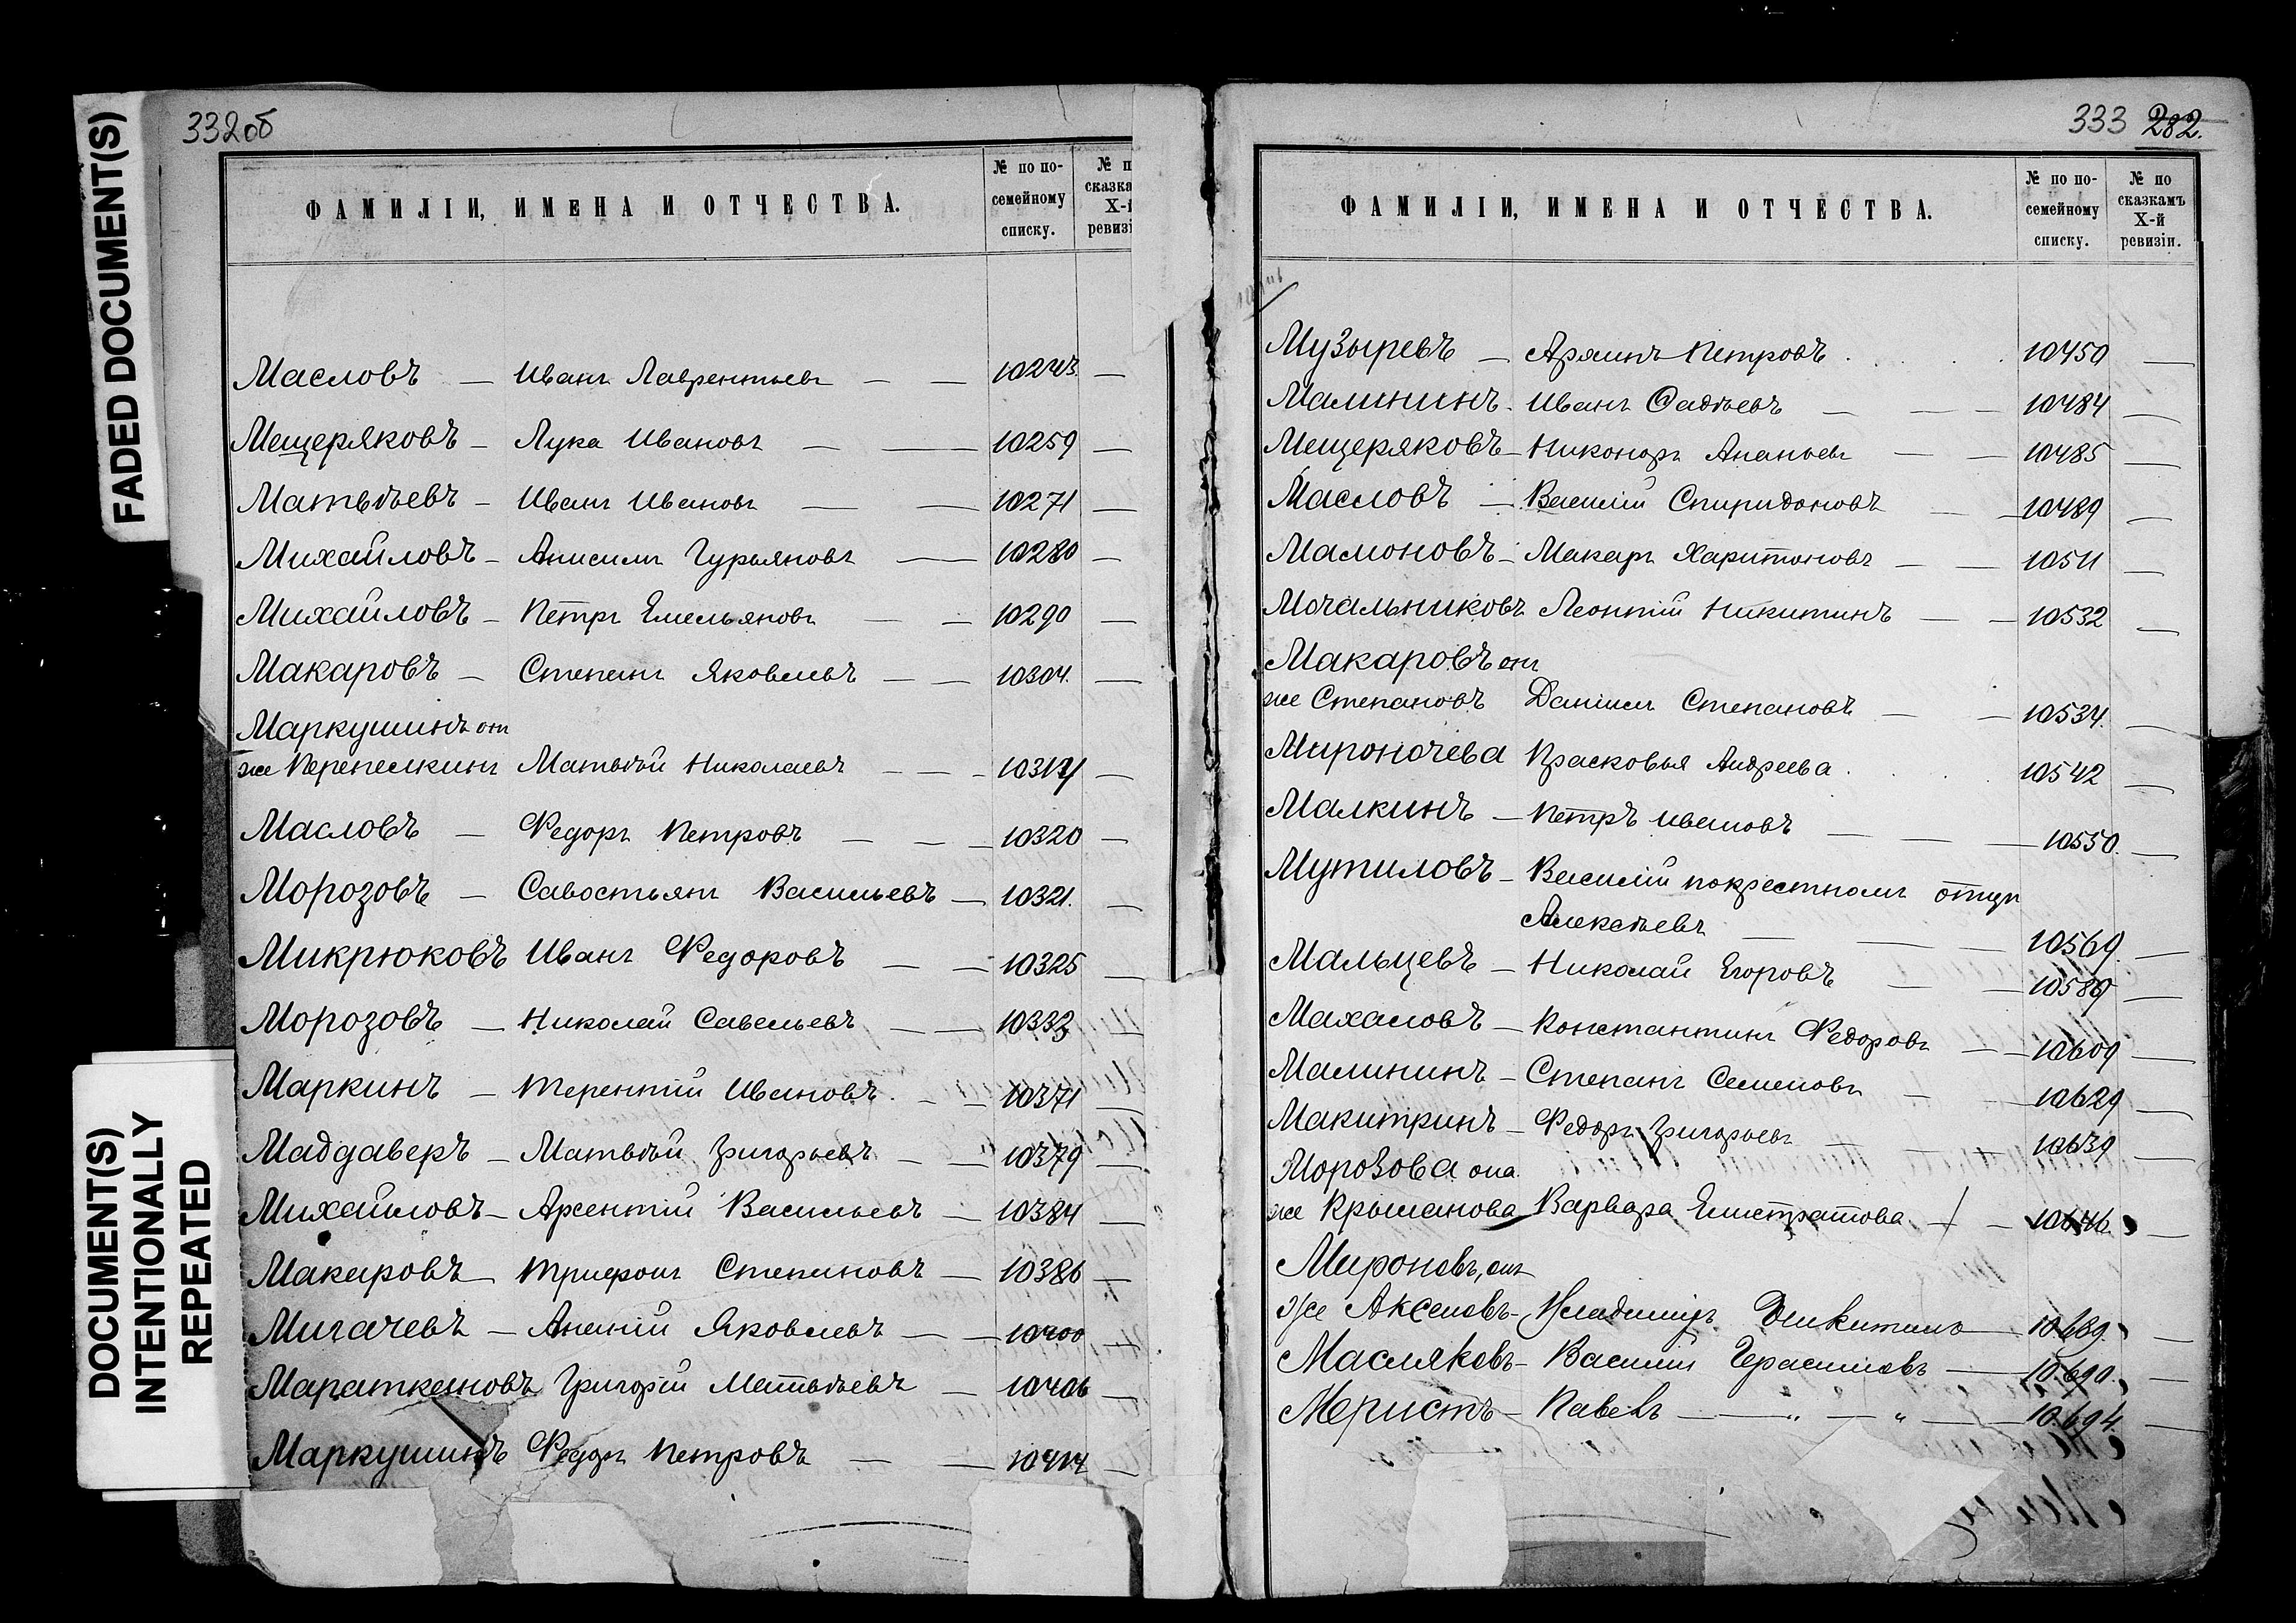 FADED DOCUMENT(S)
DOCUMENT(S)
INTENTIONALLY
REPEATED
332об
ФАМИЛІИ, ИМЕНА И ОТЧЕСТВА.
№ по по-
семейному
списку.
№ п
сказка
X-й
ревизі
Масловъ — Иванъ Лаврентьевъ — — 10243 —
Мещеряковъ — Лука Ивановъ — — 10259 —
Матвѣевъ — Иванъ Ивановъ — — 10271 —
Михайловъ — Анисимъ Гурьяновъ — 10280 —
Михайловъ — Петръ Емельяновъ — — 10290 —
Макаровъ — Степанъ Яковлевъ — — 10304. —
Маркушинъ онъ
же Перепелкинъ Матвѣй Николаевъ — — —
Масловъ — Федоръ Петровъ — — — 10320 —
Морозовъ — Савостьянъ Васильевъ — 10321. —
Микрюковъ Иванъ Федоровъ — — 10325 —
Морозовъ — Николай Савельевъ — — 10333 —
Маркинъ — Терентій Ивановъ. — — 10371 —
Маддаверъ — Матвѣй Григорьевъ — — 10379 —
Михайловъ — Арсентій Васильевъ — 10384 —
Макаровъ — Трифонъ Степановъ — 10386 —
Мигачевъ — Ананій Яковлевъ — — 10400 —
Мараткановъ Григорій Матвѣевъ — 10406 —
Маркушинъ Федоръ Петровъ — — 10414 —
333 282.
ФАМИЛІИ, ИМЕНА И ОТЧЕСТВА.
№ по по-
семейному
списку.
№ по
сказкамъ
X-й
ревизіи.
Музыревъ — Петровъ . . . 10450 —
Малининъ. Иванъ Фадѣевъ — — — 10484 —
Мещеряковъ — Никоноръ Ананьевъ — — 10485 —
Масловъ — Василій Спиридоновъ — — 10489 —
Мамоновъ — Макаръ Харитоновъ — — 10511 —
Мочальниковъ Леонтій Никитинъ — — 10532 —
Макаровъ онъ
же Степановъ Даніилъ Степановъ — — 10534. —
Мироночева Прасковья Андреева . . . 10542 —
Малкинъ — Петръ Ивановъ — — — 10550. —
Мутиловъ — Василій по крестномъ отцу
Алексѣевъ — — — 10569. —
Мальцевъ — Николай Егоровъ — — 10589 —
Махаловъ — Константинъ Федоровъ — — 10609 —
Малининъ — Степанъ Семеновъ — — 10629 —
Макитринъ — Федоръ Григорьевъ — 10639 —
Морозова она
же Крыманова Варвара Елистратова — — 10646. —
Мироновъ, онъ
же Аксеновъ — Владиміръ — 10689. —
Масляковъ — Василій Герасимовъ — 10690. —
Меристъ — Павелъ — — „ — „ — 10694 —